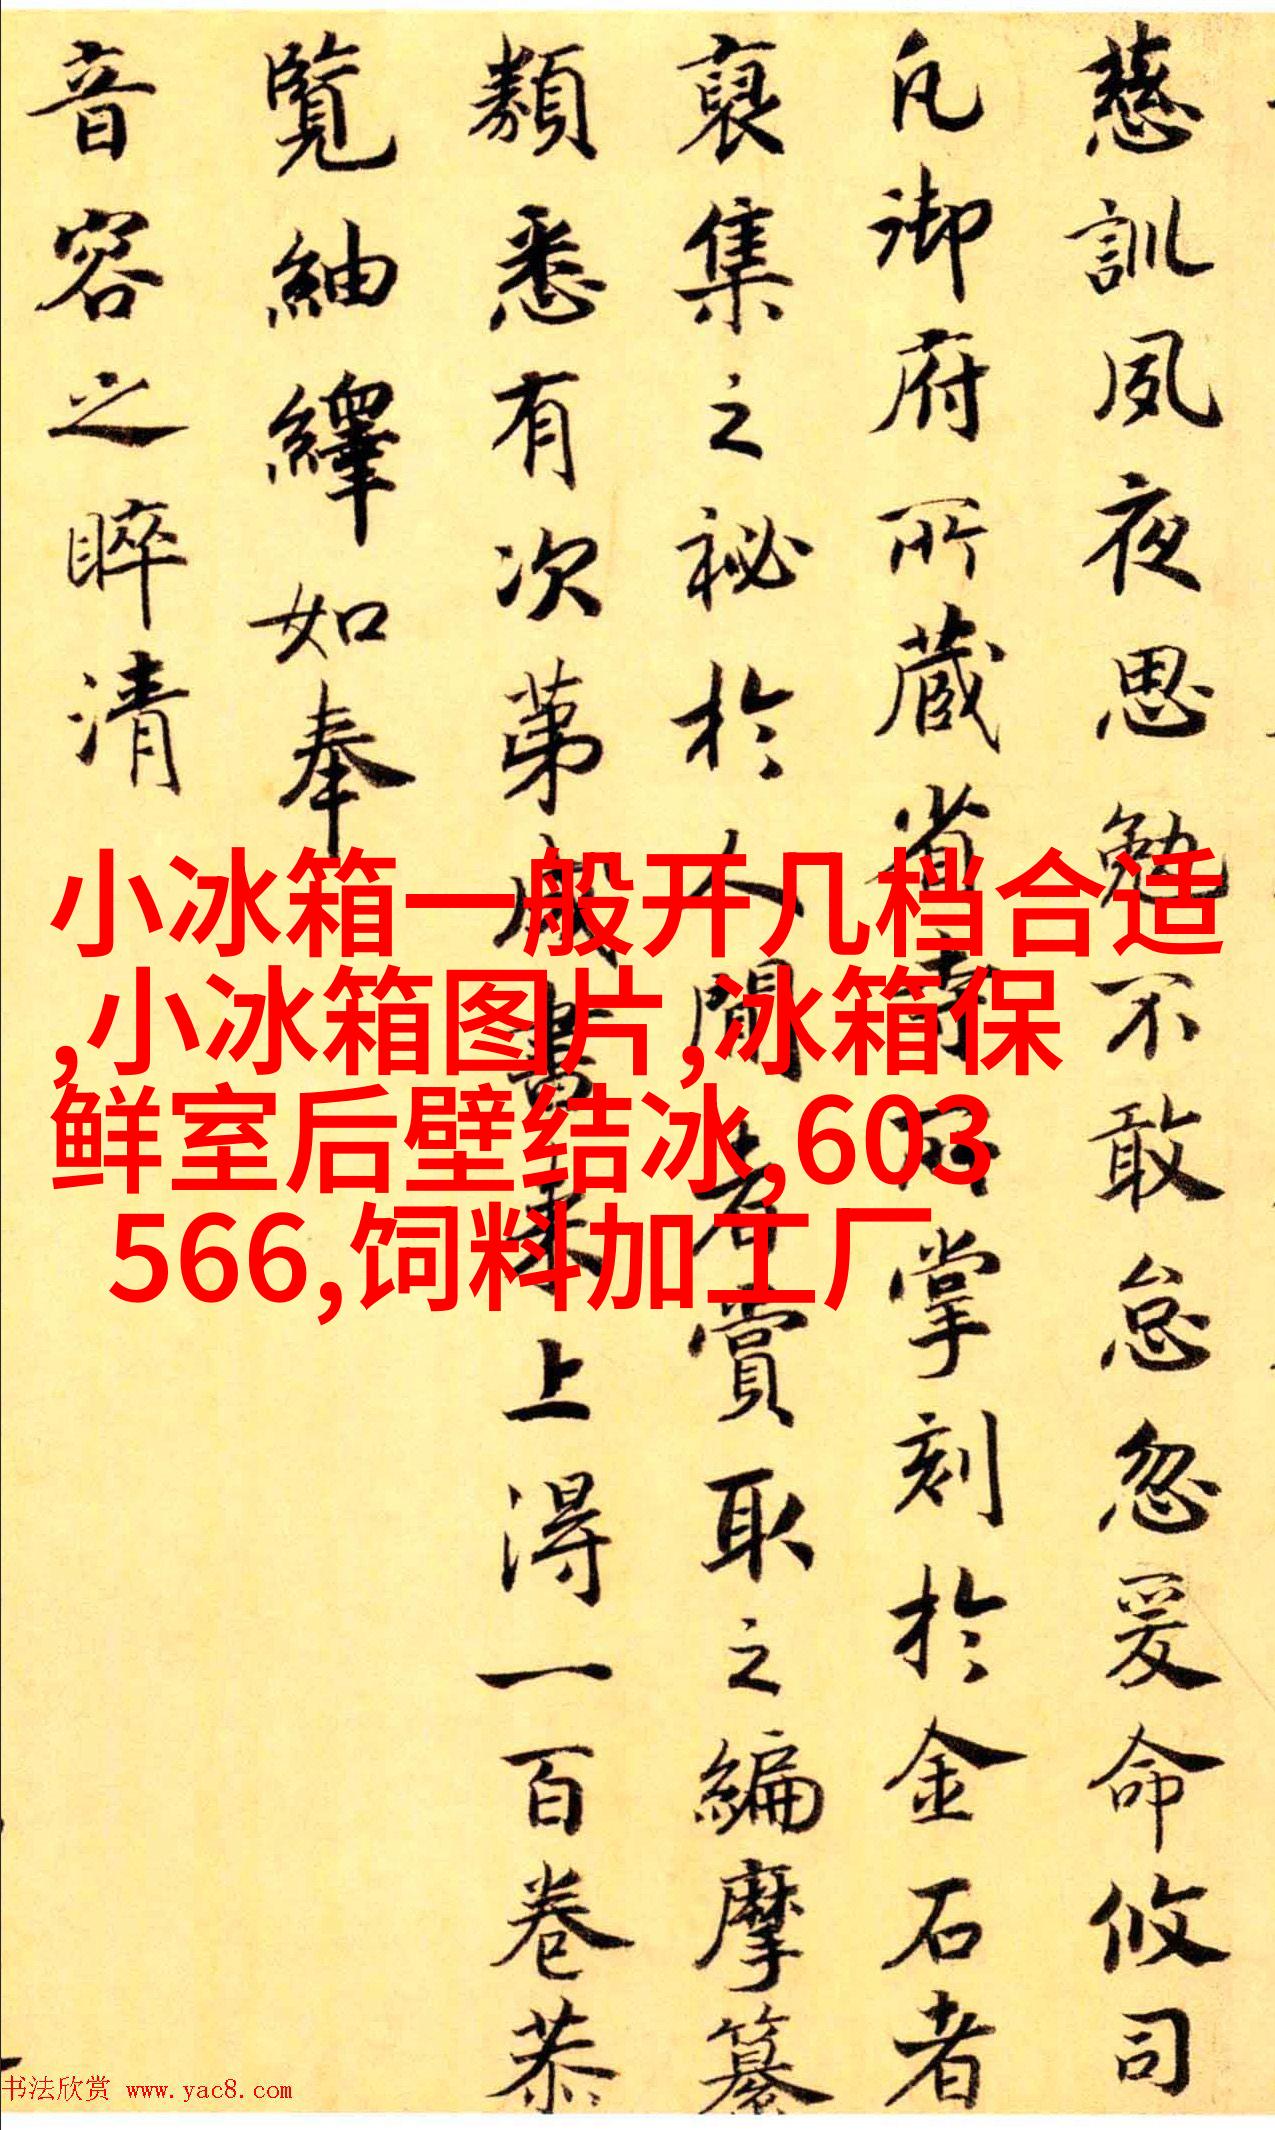 慈訓夙夜思勉不敢怠忽爰命攸司
凡御府所蔵省寺所掌刻於金石者
裒集之祕於人間賞取之編摩纂
類悉有次第成書來上淂一百卷恭
覽紬繹如奉
音容之睟清
小冰箱一般开几档合适
,小冰箱图片,冰箱保
鲜室后壁结冰,603
566,饲料加工厂
书法欣赏 www.yac8.com